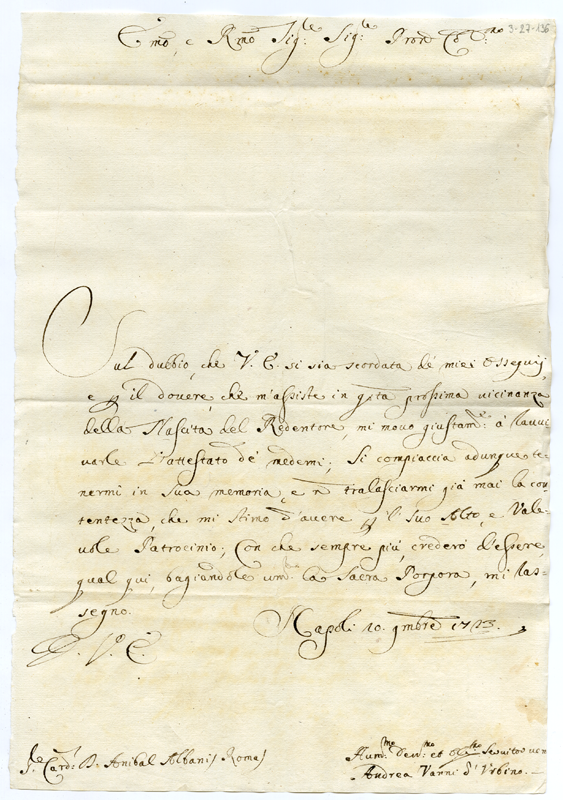 3-27-136
E.mo, e R.mo Sig.re Sig.re Pron Col.mo
Sul dubbio, che V.a E. si sia scordata de' miei Ossequij,
e p il dovere, che m'assiste in qsta prossima vicinanza
della Nascita del Redentore, mi movo giustam.e à ravvi
varle l'attestato de' medemi; Si compiaccia adunque te-
nermi in Sua memoria, e n tralasciarmi già mai la con
tentezza, che mi stimo d'avere p il Suo Alto, e Vale-
vole Patrocinio; Con che sempre più, crederò d'essere,
qual qui, bagiandole um.te la Sacra Porpora, mi ras-
segno.
Napoli 10. 9mbre 1713.
D. V.a E.
S.r Card.l D. Anibal Albani / Roma /
Hum.mo Dev.mo et Obb.mo Servitor vero
Andrea Vanni d'Urbino.